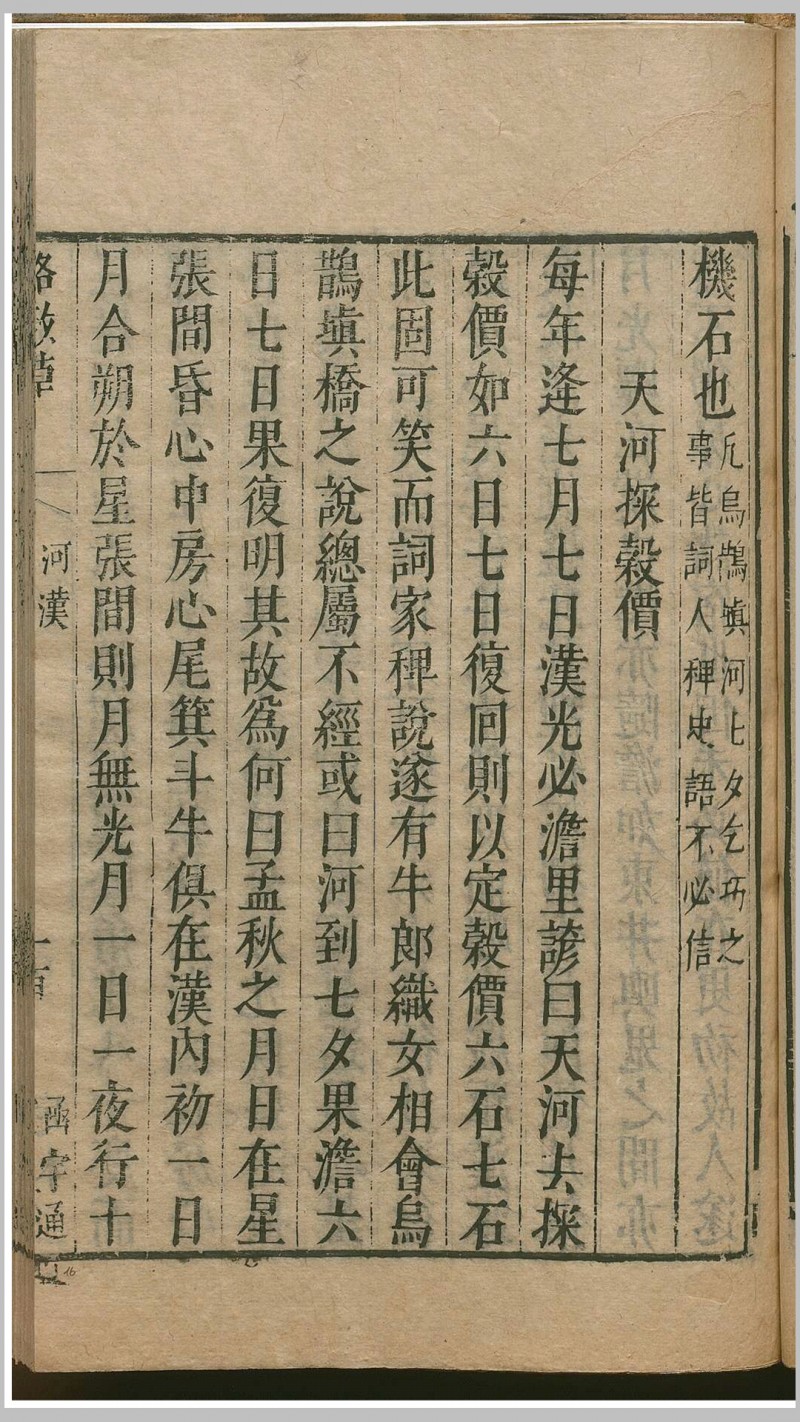 機石也凢烏鵲塡河七夕乞巧之
事皆詞人稗史語不必信
天河探穀價
每年逢七月七日漢光必澹里諺曰天河去探
穀價如六日七日復回則以定穀價六石七石
此固可笑而詞家稗說遂有牛郎織女相會烏
鵲塡橋之說總屬不經或曰河到七夕果澹六
日七日果復明其故爲何曰孟秋之月日在星
張間昏心中房心尾箕斗牛俱在漢內初一日
月合朔於星張間則月無光月一日一夜行十
格致草
河漢
一百
函宇通